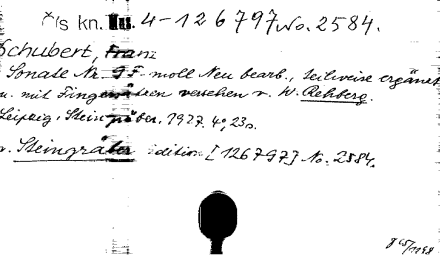 kn. 4-126797 No. 2584.
Schubert, Franz
Sonate Nr. 9 F moll Neu bearb., teilweise ergänzt
u. mit Fingersätzen versehen v. W. Rehberg.
Leipzig: Steingräber, 1927. 4°, 23 s.
Steingräber Edition [126797] No. 2584.